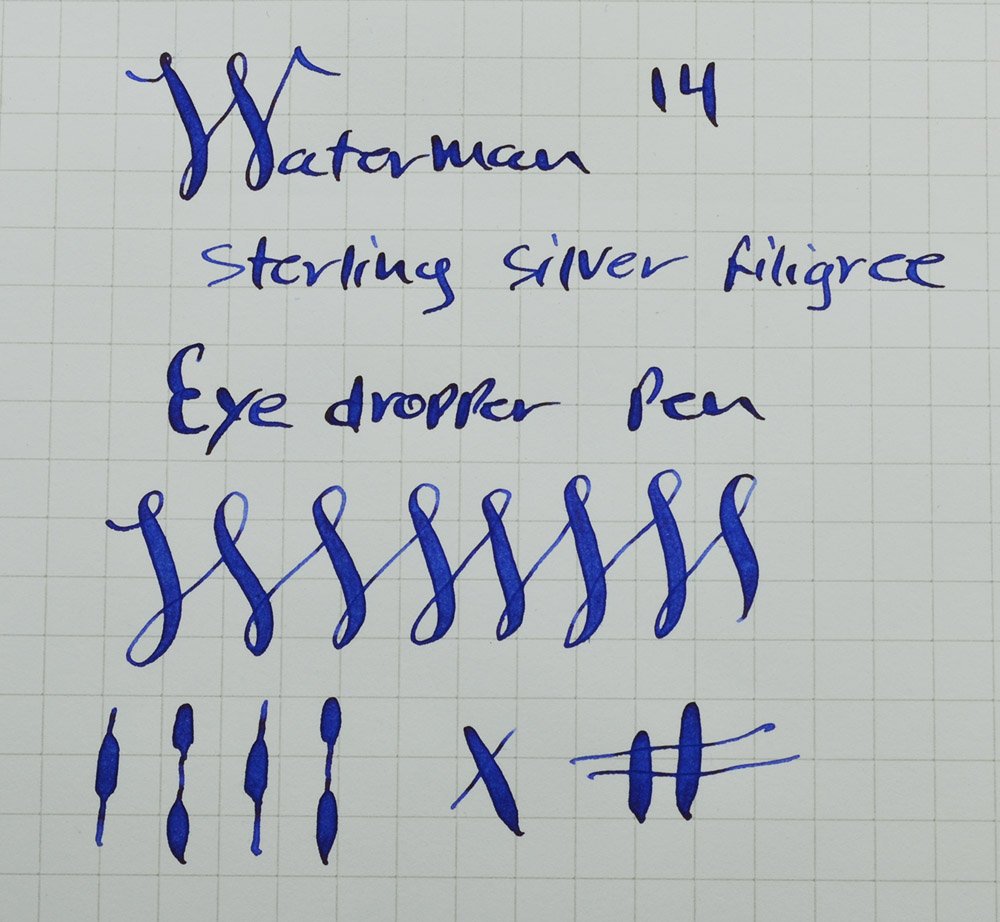 Waterman 14
Sterling silver filigree
Eye dropper Pen